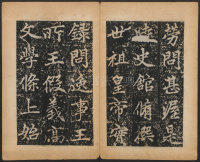 勞問甚渥是
時史館脩撰
世祖皇帝實
錄問逮事王
所王假義高
文學條上始